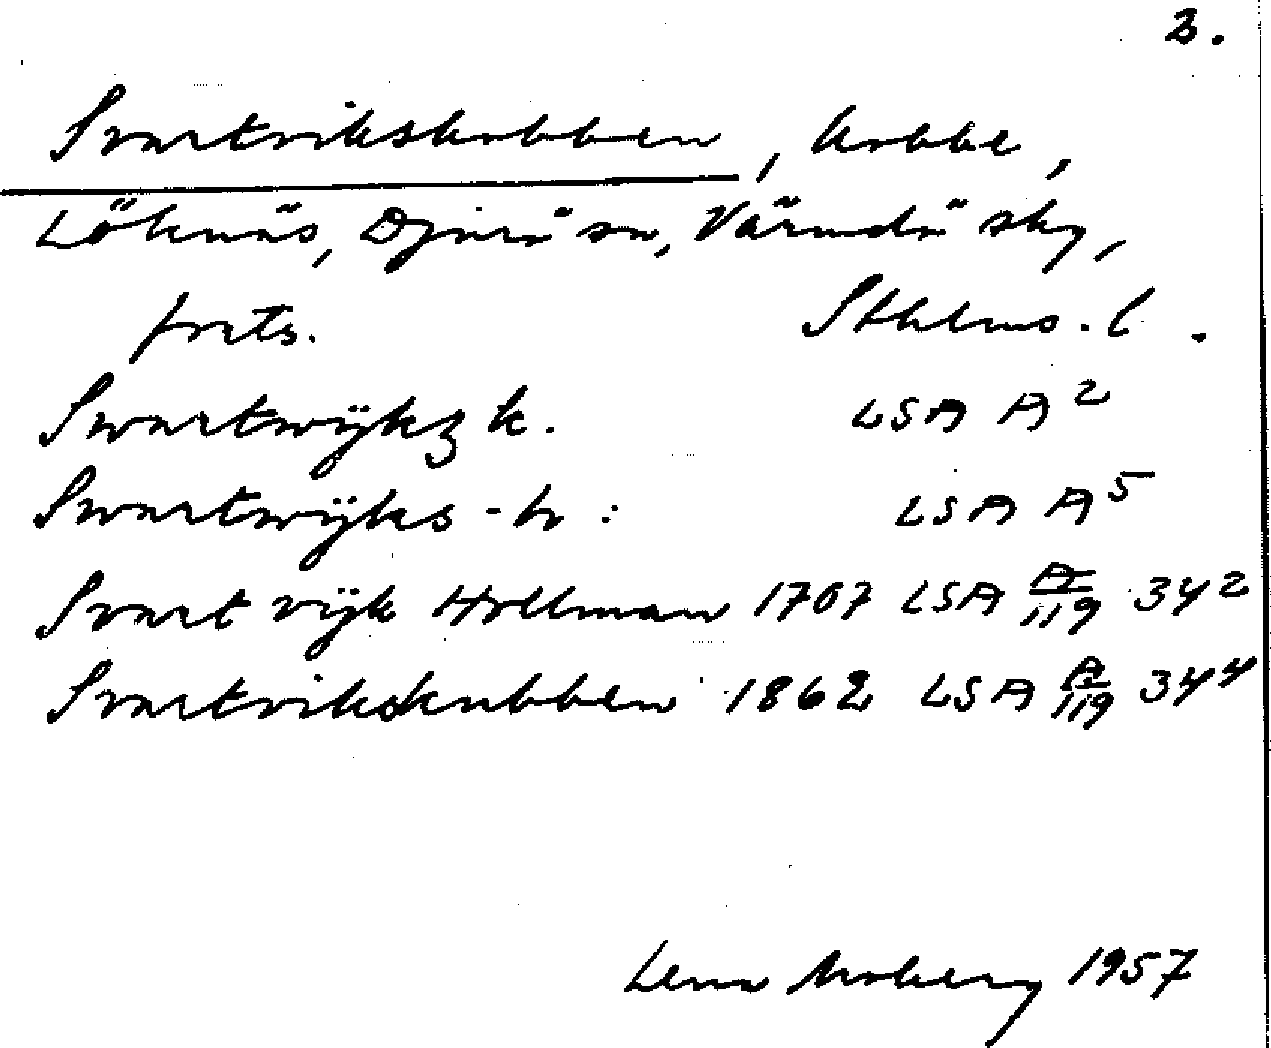 2.
Svartvikskobben, kobbe,
Löknäs, Djurö sn, Värmdö skg,
forts. Sthlms. l.
Swartwÿkz k. LSA A²
Swartwÿks - h : LSA A⁵
Svart vÿk Hollman 1707 LSA A/119 34²
Svartvikskubben 1862 LSA A/119 34⁴
Lena Moberg 1957